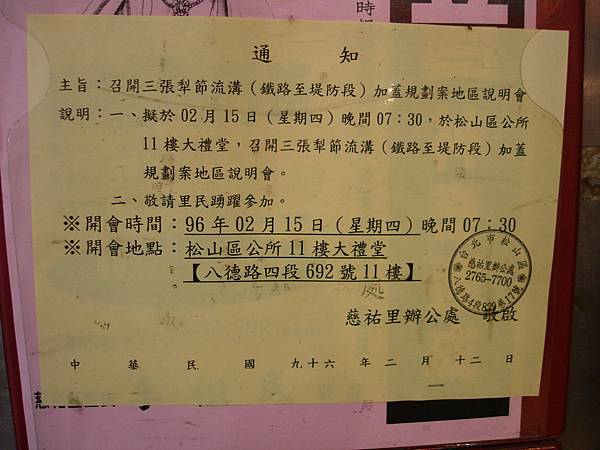 通知
主旨：召開三張犁節流溝（鐵路至堤防段）加蓋規劃案地區說明會
說明：一、擬於02月15日（星期四）晚間07：30，於松山區公所
11樓大禮堂，召開三張犁節流溝（鐵路至堤防段）加蓋
規劃案地區說明會。
二、敬請里民踴躍參加。
※開會時間：96年02月15日（星期四）晚間07：30
※開會地點：松山區公所11樓大禮堂
【八德路四段692號11樓】
台北市松山區
慈祐里辦公處
2765-7700
八德路4段839巷17號
慈祐里辦公處 敬啟
中華民國九十六年二月十二日